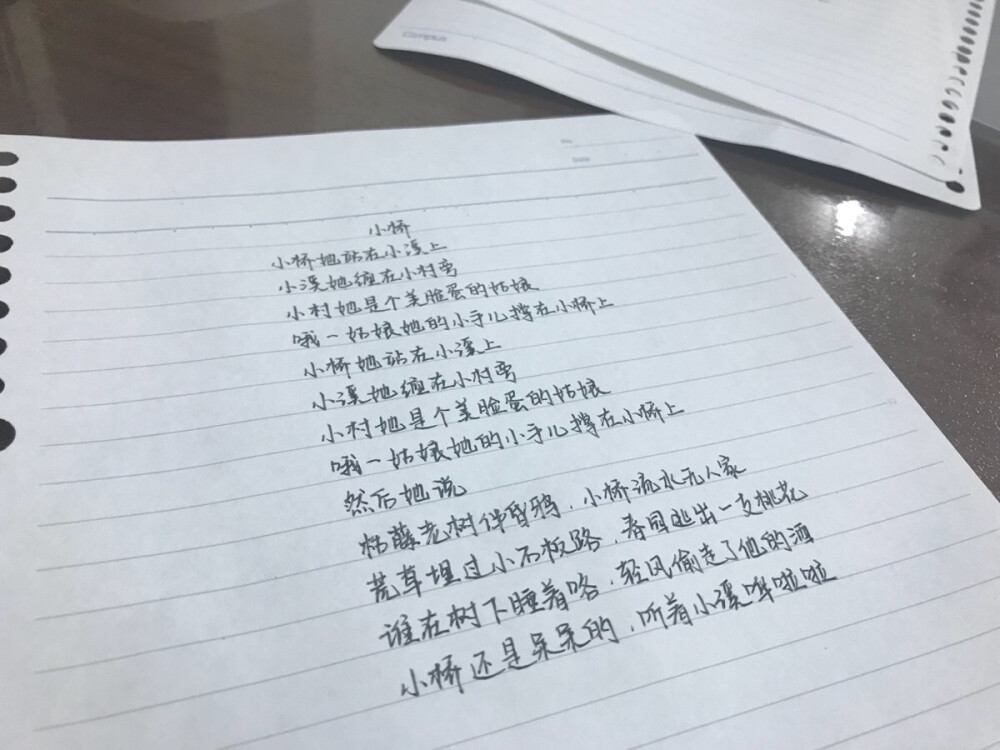 Campus
No.
Date
小桥
小桥她站在小溪上
小溪她缠在小村弯
小村她是个美脸蛋的姑娘
哦一姑娘她的小手儿撑在小桥上
小桥她站在小溪上
小溪她缠在小村弯
小村她是个美脸蛋的姑娘
哦一姑娘她的小手儿撑在小桥上
然后她说
枯藤老树伴昏鸦，小桥流水无人家
荒草埋过小石板路，春园逃出一支桃花
谁在树下睡着咯，轻风偷走了他的酒
小桥还是呆呆的，听着小溪哗啦啦